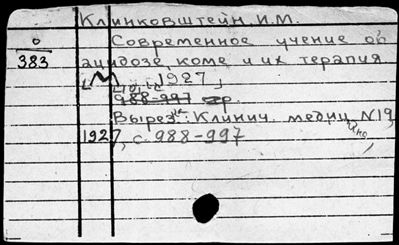 Клинковштейн И.М.
О
383
Современное учение об
ацидозе, коме и их терапия
[М., 1927]
988-997 стр.
Вырез.: Клинич. медиц. №19,
1927, с. 988-997